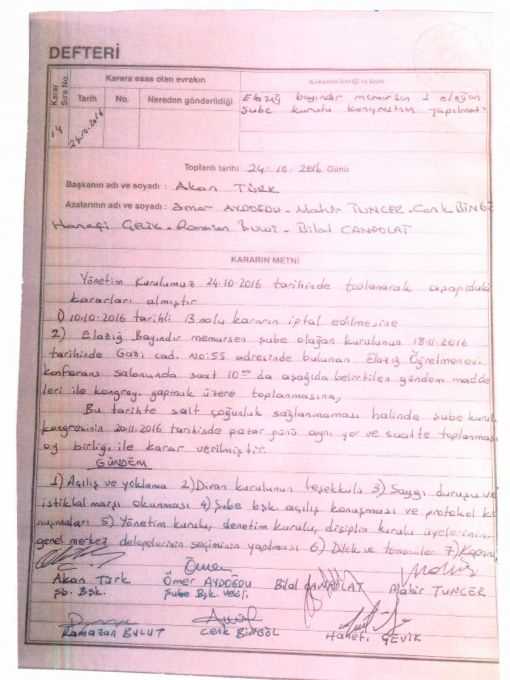 DEFTERİ
Karar Sıra No.
Karara esas olan evrakın
Tarih No. Nereden gönderildiği
14
24.10.2016
Elazığ bayındır memursen 2 olağan
şube kurulu kongresinin yapılması
Toplantı tarihi : 24.10.2016 Günü
Başkanın adı ve soyadı : Akan TÜRK
Azalarının adı ve soyadı : Ömer AYDOĞDU - Mahir TUNCER - Cenk BİNGÖL
Hanefi ÇEVİK - Ramazan BULUT - Bilal CANPOLAT
KARARIN METNİ
Yönetim Kurulumuz 24.10.2016 tarihinde toplanarak aşağıdaki
kararları almıştır
1) 10.10.2016 tarihli 13 nolu kararın iptal edilmesine
2) Elazığ Bayındır memursen şube olağan kurulunun 18.11.2016
tarihinde Gazi cad. No:55 adresinde bulunan Elazığ Öğretmenevi
konferans salonunda saat 10 da aşağıda belirtilen gündem madde
leri ile kongreyi yapmak üzere toplanmasına,
Bu tarihte salt çoğunluk sağlanmaması halinde şube kurul
kongresinin 20.11.2016 tarihinde pazar günü aynı yer ve saatte toplanması
oy birliği ile karar verilmiştir.
GÜNDEM
1) Açılış ve yoklama 2) Divan kurulunun teşekkülü 3) Saygı duruşu ve
istiklal marşı okunması 4) Şube bşk açılış konuşması ve protokol ko
nuşmaları 5) Yönetim kurulu, denetim kurulu, disiplin kurulu üyelerinin,
genel merkez delegelerinin seçiminin yapılması 6) Dilek ve temenniler 7) Kapanış
Akan Türk Ömer AYDOĞDU Bilal CANPOLAT Mahir TUNCER
Şb. Bşk. Şube Bşk Vekili
Ramazan BULUT Cenk BİNGÖL Hanefi ÇEVİK